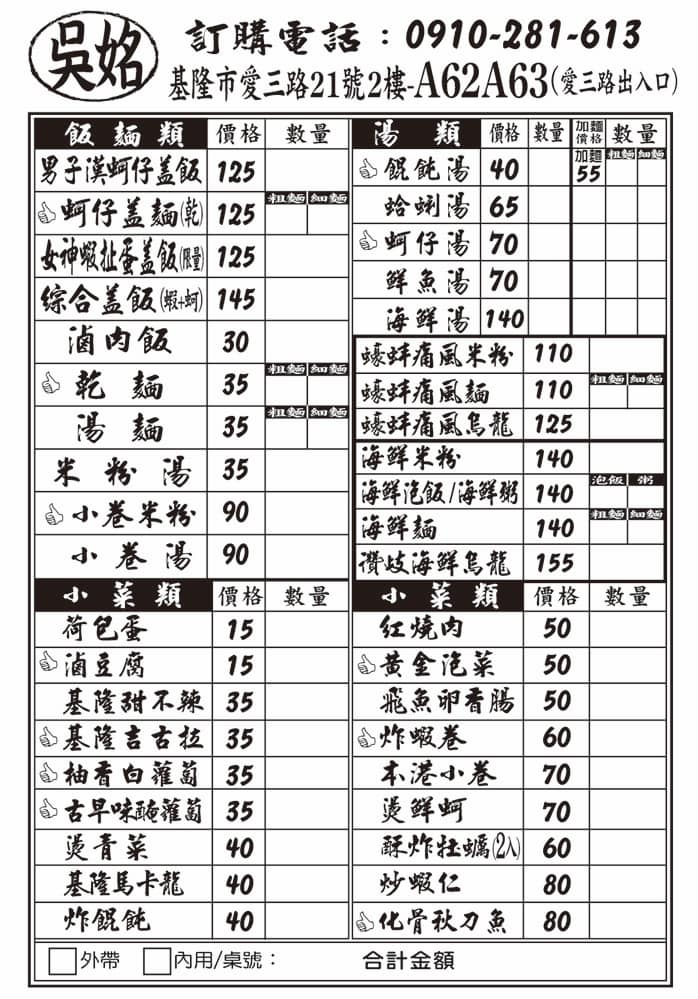 吳姳
訂購電話：0910-281-613
基隆市愛三路21號2樓-A62A63(愛三路出入口)
飯麵類 價格 數量
男子漢蚵仔盖飯 125
蚵仔盖麵(乾) 125 粗麵 細麵
女神蝦扯蛋盖飯(限量) 125
綜合盖飯(蝦+蚵) 145
滷肉飯 30
乾麵 35 粗麵 細麵
湯麵 35 粗麵 細麵
米粉湯 35
小卷米粉 90
小卷湯 90
湯類 價格 數量 加麵價格 數量
餛飩湯 40 加麵 55 粗麵 細麵
蛤蜊湯 65
蚵仔湯 70
鮮魚湯 70
海鮮湯 140
蠔蚌痛風米粉 110
蠔蚌痛風麵 110 粗麵 細麵
蠔蚌痛風烏龍 125
海鮮米粉 140
海鮮泡飯/海鮮粥 140 泡飯 粥
海鮮麵 140 粗麵 細麵
讚岐海鮮烏龍 155
小菜類 價格 數量
荷包蛋 15
滷豆腐 15
基隆甜不辣 35
基隆吉古拉 35
柚香白蘿蔔 35
古早味醃蘿蔔 35
燙青菜 40
基隆馬卡龍 40
炸餛飩 40
小菜類 價格 數量
紅燒肉 50
黃金泡菜 50
飛魚卵香腸 50
炸蝦卷 60
本港小卷 70
燙鮮蚵 70
酥炸牡蠣(2入) 60
炒蝦仁 80
化骨秋刀魚 80
外帶 內用/桌號： 合計金額